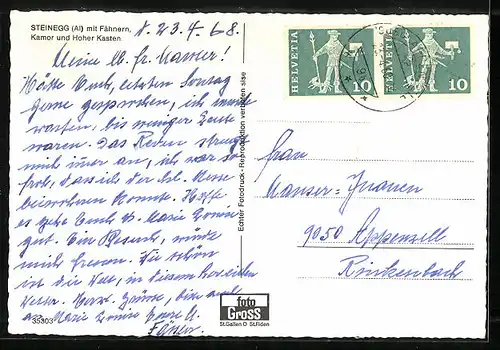 STEINEGG (AI) mit Fähnern,
Kamor und Hoher Kasten
A. 23.4.68.
Meine lb. fr. Manser!
Hätte Euch, letzten Sonntag
gerne gesprochen, ich musste
warten, bis weniger Leute
waren. Das Reden strengt
mich immer an, ich war so
froh, dass ich der hl. Messe
beiwohnen konnte. Hoffe
es gehe Euch u. Marie Louise
gut. Ein Besuch, würde
mich freuen. Wie schön
ist die Welt, in diesem
Wetter. Herzl. Grüsse, bitte auch
an Marie Louise
Fässler.
35303
Echter Fotodruck - Reproduktion verboten
foto
GROSS
St.Gallen O St.Fiden
HELVETIA 10
HELVETIA 10
Frau
Manser-Inauen
9050 Appenzell
Rinkenbach